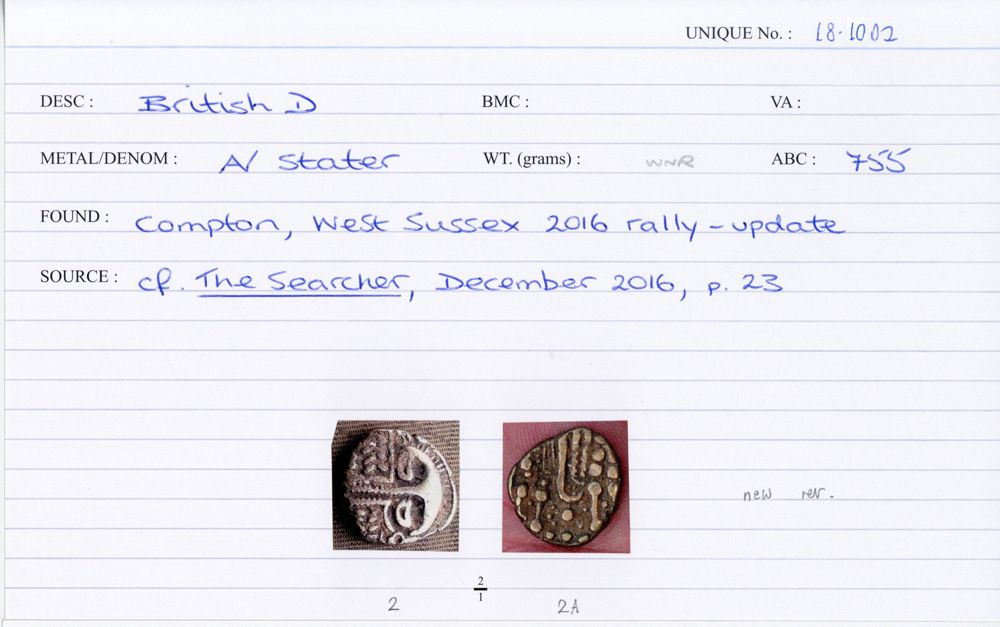 UNIQUE No. : 18-1002
DESC : British D BMC : VA :
METAL/DENOM : A/ Stater WT. (grams) : WNR ABC : 755
FOUND : Compton, West Sussex 2016 rally - update
SOURCE : cf. The Searcher, December 2016, p. 23
new rev.
2
1
2 2A